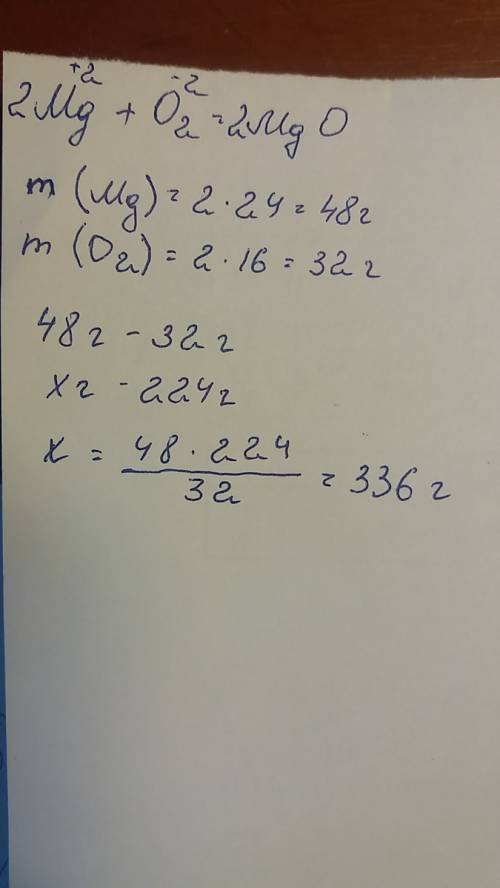 +2 -2
2Mg + O₂ = 2MgO
m (Mg) = 2 · 24 = 48г
m (O₂) = 2 · 16 = 32 г
48 г - 32 г
x г - 224 г
x = 48 · 224 / 32 = 336 г